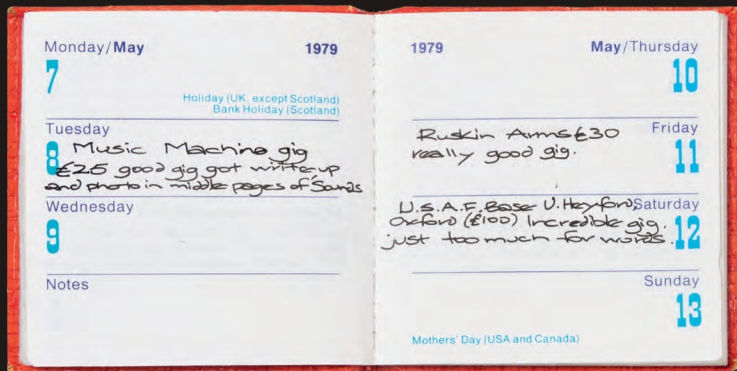 Monday/May 1979
7
Holiday (UK, except Scotland)
Bank Holiday (Scotland)
Tuesday
8 Music Machine gig
£25 good gig got write-up
and photo in middle pages of Sounds
Wednesday
9
Notes
1979 May/Thursday
10
Friday
Ruskin Arms £30
really good gig.
11
Saturday
U.S.A.F. Base U. Heyford,
Oxford (£100) Incredible gig.
just too much for words.
12
Sunday
13
Mothers' Day (USA and Canada)